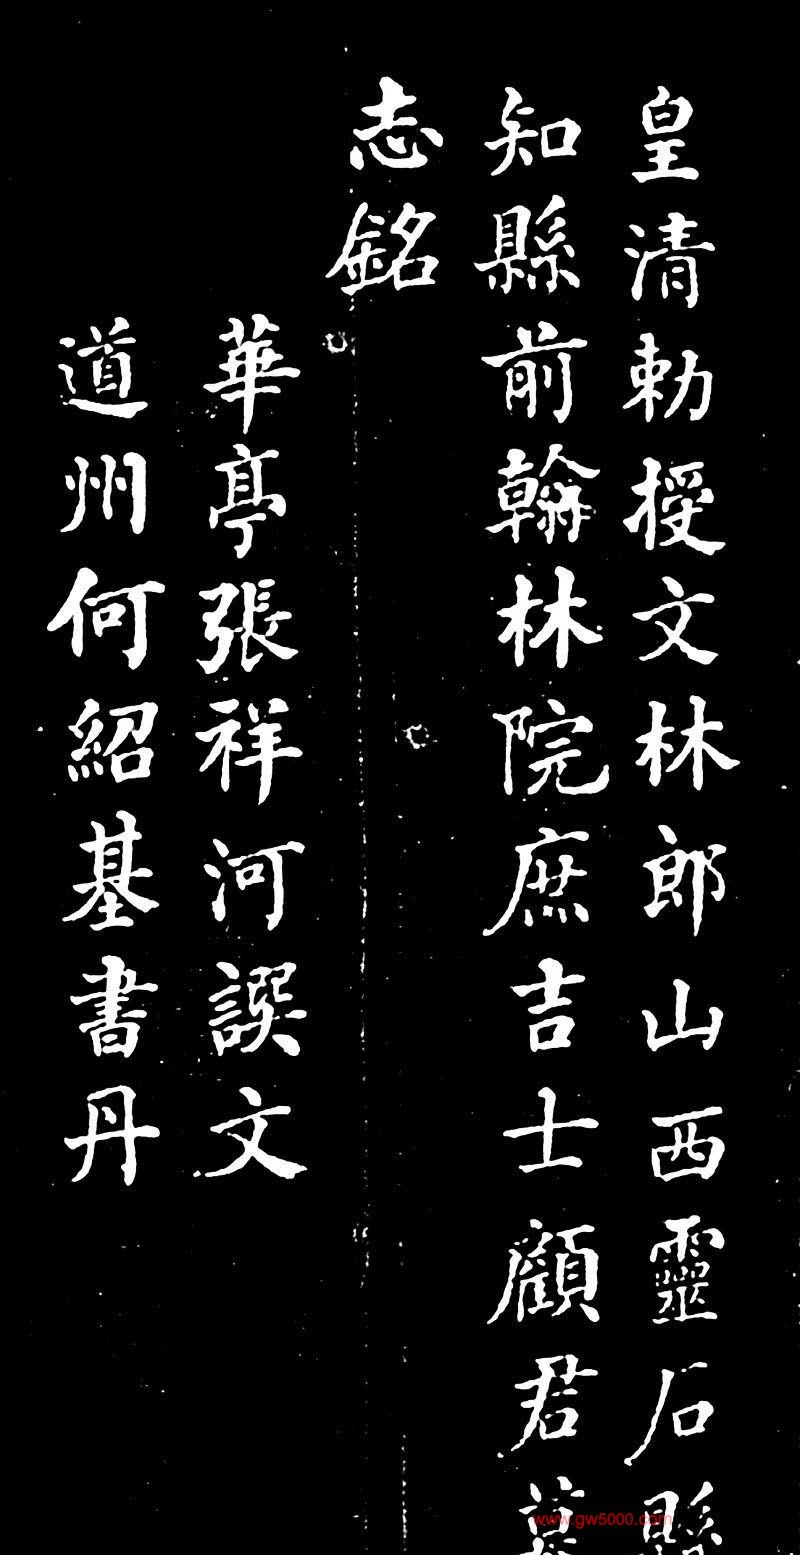 皇清勅授文林郎山西靈石縣
知縣前翰林院庶吉士顧君墓
志銘
華亭張祥河譔文
道州何紹基書丹
www.gw5000.com